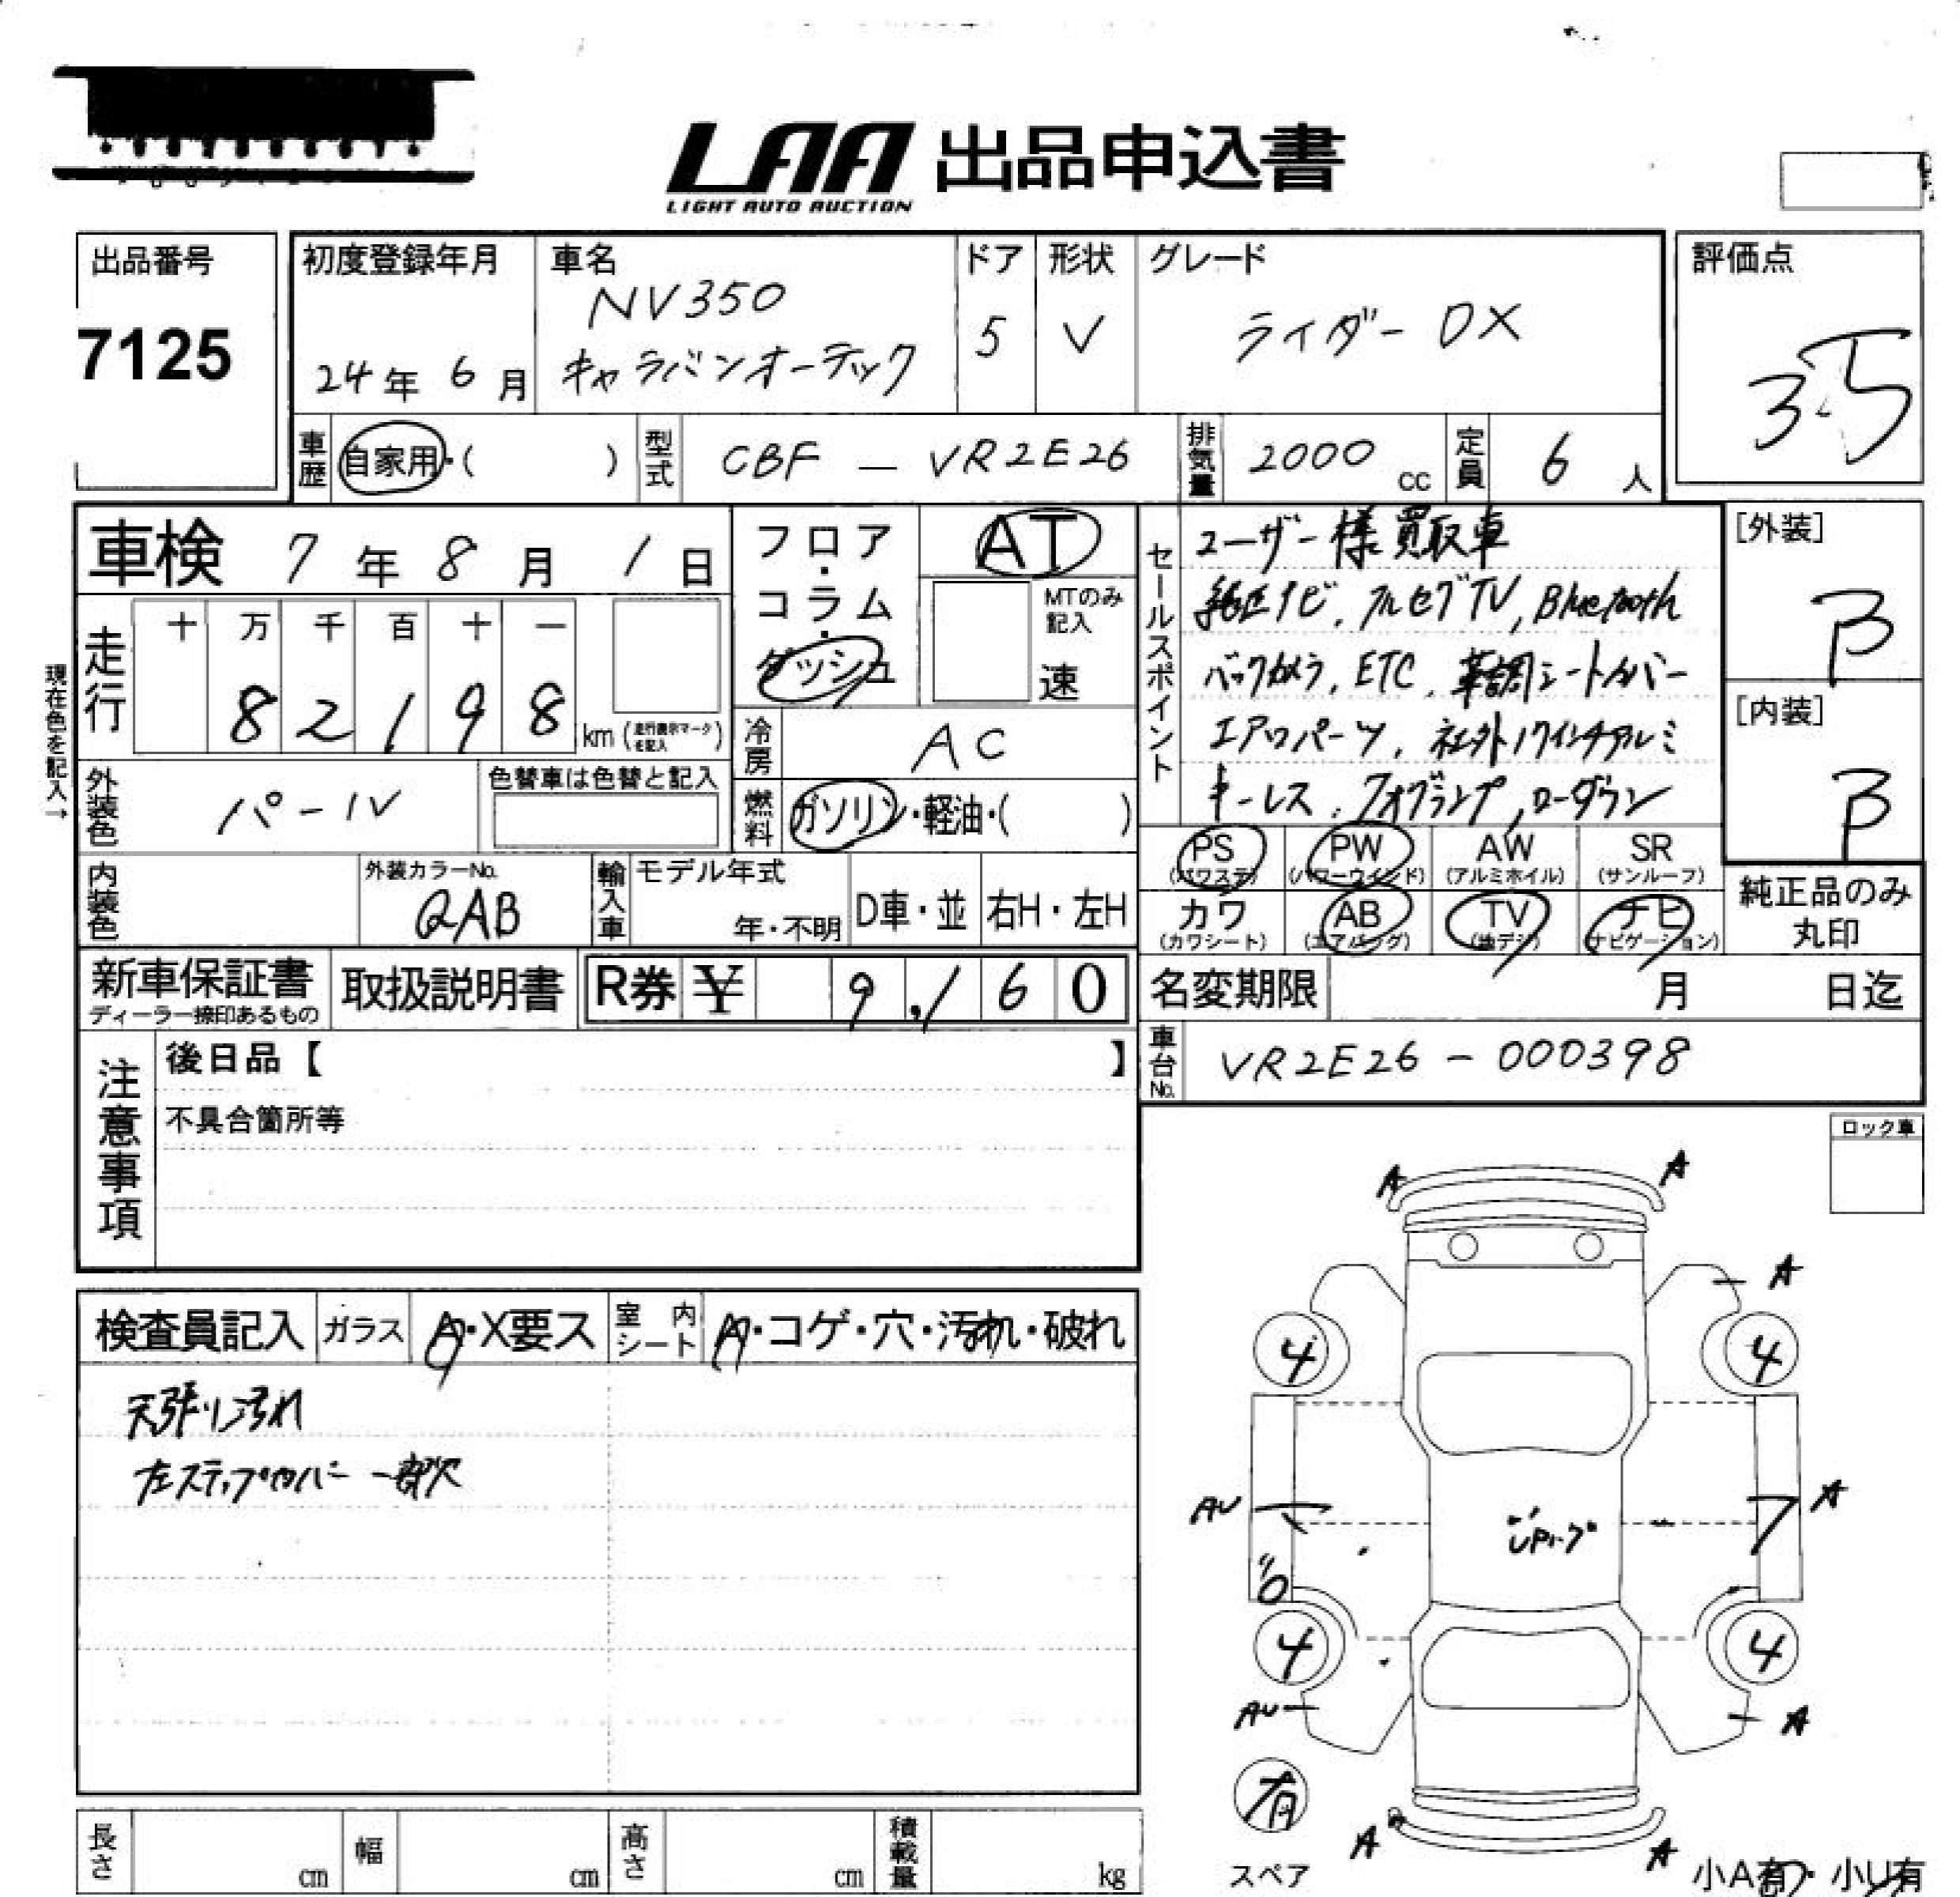 LAA 出品申込書
LIGHT AUTO AUCTION
出品番号
7125
初度登録年月
24年 6月
車名
NV350
キャラバンオーテック
ドア
5
形状
V
グレード
ライダー DX
評価点
3.5
車歴 自家用・( )
型式 CBF - VR2E26
排気量 2000 cc
定員 6 人
車検 7年 8月 1日
フロア・コラム・ダッシュ
AT
MTのみ記入
速
現在色を記入→
走行
十 万 千 百 十 一
8 2 1 9 8
km (走行表示マークを記入)
冷房 AC
外装色 パール
色替車は色替と記入
燃料 ガソリン・軽油・( )
内装色
外装カラーNo.
QAB
輸入車
モデル年式
年・不明
D車・並
右H・左H
セールスポイント
ユーザー様買取車
純正ナビ, フルセグTV, Bluetooth
バックカメラ, ETC, 革調シートカバー
エアロパーツ, 社外17インチアルミ
キーレス, フォグランプ, ローダウン
[外装]
B
[内装]
B
PS (パワステ)
PW (パワーウインド)
AW (アルミホイル)
SR (サンルーフ)
カワ (カワシート)
AB (エアバッグ)
TV (地デジ)
ナビ (ナビゲーション)
純正品のみ
丸印
新車保証書
ディーラー捺印あるもの
取扱説明書
R券 ¥ 9,160
名変期限 月 日迄
車台No. VR2E26 - 000398
注意事項
後日品【 】
不具合箇所等
ロック車
検査員記入
ガラス A・X要ス
室内シート A・コゲ・穴・汚れ・破れ
天張り汚れ
左ステップカバー 一部欠
A
A
A
4
4
AU
A
4
4
AU
A
有
スペア
A
A
小A有・小U有
長さ cm
幅 cm
高さ cm
積載量 kg